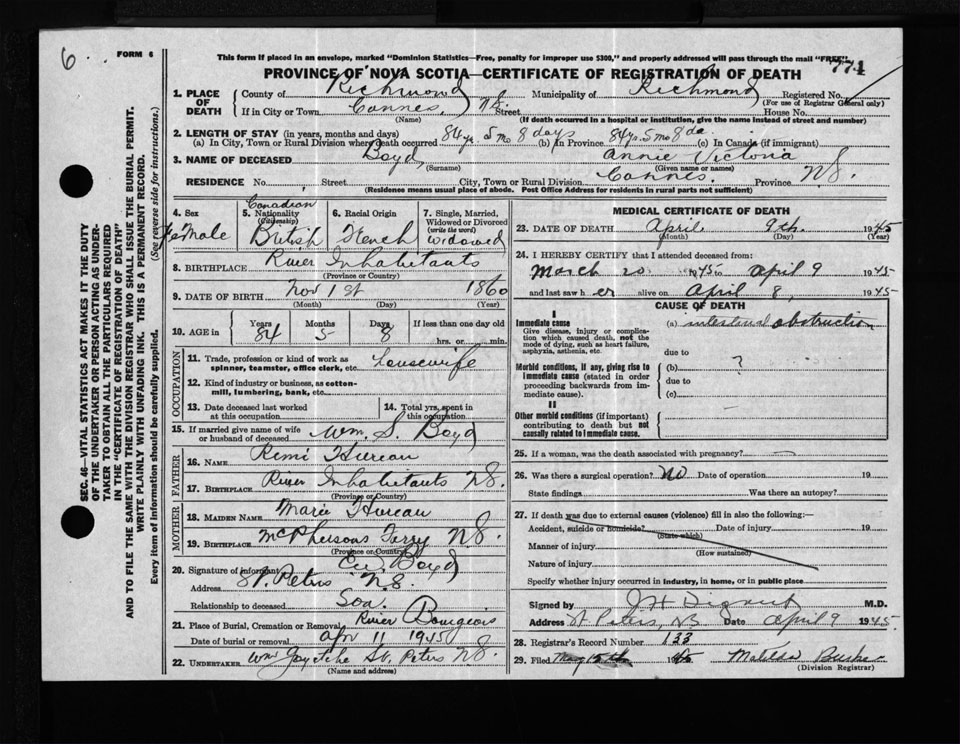 6
FORM 6
This form if placed in an envelope, marked "Dominion Statistics—Free, penalty for improper use $300," and properly addressed will pass through the mail "FREE".
PROVINCE OF NOVA SCOTIA—CERTIFICATE OF REGISTRATION OF DEATH
774
1. PLACE OF DEATH
County of Richmond Municipality of Richmond Registered No.
(For use of Registrar General only)
If in City or Town Cannes, N.S. Street House No.
(Name) (If death occurred in a hospital or institution, give the name instead of street and number)
2. LENGTH OF STAY (in years, months and days)
(a) In City, Town or Rural Division where death occurred 84 yr. 5 mo 8 days (b) In Province 84 yr. 5 mo 8 da (c) In Canada (if immigrant)
3. NAME OF DECEASED Boyd Annie Victoria
(Surname) (Given name or names)
RESIDENCE No. Street City, Town or Rural Division Cannes Province N.S.
(Residence means usual place of abode. Post Office Address for residents in rural parts not sufficient)
4. Sex Female
5. Nationality (Citizenship) Canadian British
6. Racial Origin French
7. Single, Married, Widowed or Divorced (write the word) widowed
8. BIRTHPLACE River Inhabitants
(Province or Country)
9. DATE OF BIRTH Nov 1st 1860
(Month) (Day) (Year)
10. AGE in Years 84 Months 5 Days 8 If less than one day old hrs. or min.
OCCUPATION
11. Trade, profession or kind of work as spinner, teamster, office clerk, etc. housewife
12. Kind of industry or business, as cotton-mill, lumbering, bank, etc.
13. Date deceased last worked at this occupation
14. Total yrs. spent in this occupation
15. If married give name of wife or husband of deceased Wm. S. Boyd
FATHER
16. Name Remi Hureau
17. Birthplace River Inhabitants N.S.
(Province or Country)
MOTHER
18. Maiden Name Marie Hureau
19. Birthplace McPhersons Ferry N.S.
(Province or Country)
20. Signature of Informant Boyd
Address St. Peters N.S.
Relationship to deceased Son.
21. Place of Burial, Cremation or Removal River Bourgeois
Date of burial or removal Apr 11 1945
22. UNDERTAKER Wm St. Peters N.S.
(Name and address)
MEDICAL CERTIFICATE OF DEATH
23. DATE OF DEATH April 9th. 1945
(Month) (Day) (Year)
24. I HEREBY CERTIFY that I attended deceased from:
March 20 1945 to April 9 1945
and last saw h er alive on April 8, 1945
CAUSE OF DEATH
I
Immediate cause
Give disease, injury or complication which caused death, not the mode of dying, such as heart failure, asphyxia, asthenia, etc.
(a) intestinal obstruction
due to
Morbid conditions, if any, giving rise to immediate cause (stated in order proceeding backwards from immediate cause).
(b) ?
due to
(c)
II
Other morbid conditions (if important) contributing to death but not causally related to immediate cause.
25. If a woman, was the death associated with pregnancy?
26. Was there a surgical operation? No Date of operation 19
State findings Was there an autopsy?
27. If death was due to external causes (violence) fill in also the following:—
Accident, suicide or homicide? Date of injury 19
(State which)
Manner of injury
(How sustained)
Nature of injury
Specify whether injury occurred in industry, in home, or in public place
Signed by M.D.
Address St. Peters, N.S. Date April 9 1945
28. Registrar's Record Number 133
29. Filed May 15th 1945 Matilda Burke
(Division Registrar)
SEC. 46—VITAL STATISTICS ACT MAKES IT THE DUTY
OF THE UNDERTAKER OR PERSON ACTING AS UNDER-
TAKER TO OBTAIN ALL THE PARTICULARS REQUIRED
IN THE "CERTIFICATE OF REGISTRATION OF DEATH"
AND TO FILE THE SAME WITH THE DIVISION REGISTRAR WHO SHALL ISSUE THE BURIAL PERMIT.
WRITE PLAINLY WITH UNFADING INK. THIS IS A PERMANENT RECORD.
Every item of information should be carefully supplied. (See reverse side for instructions.)